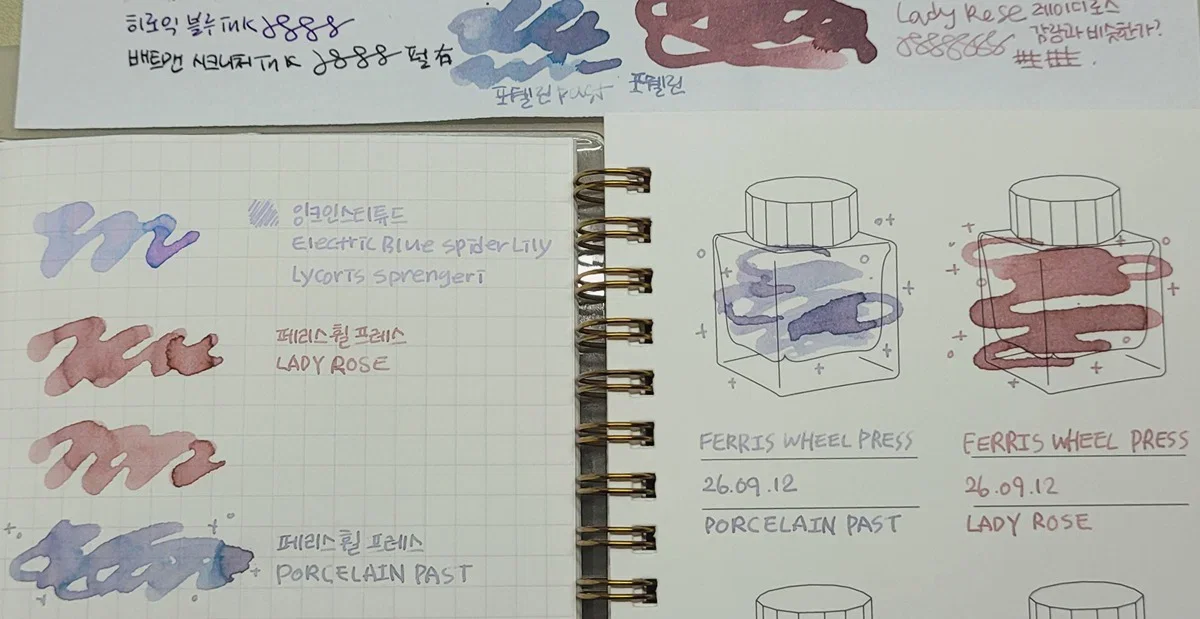 히로익 블루 ink
배트맨 시그니처 ink 펄 有
포셀린 past 포셀린
Lady Rose 레이디로스
감람과 비슷한가?
잉크인스티튜드
Electric Blue spider Lily
Lycoris sprengeri
페리스휠 프레스
LADY ROSE
페리스휠 프레스
PORCELAIN PAST
FERRIS WHEEL PRESS
26.09.12
PORCELAIN PAST
FERRIS WHEEL PRESS
26.09.12
LADY ROSE